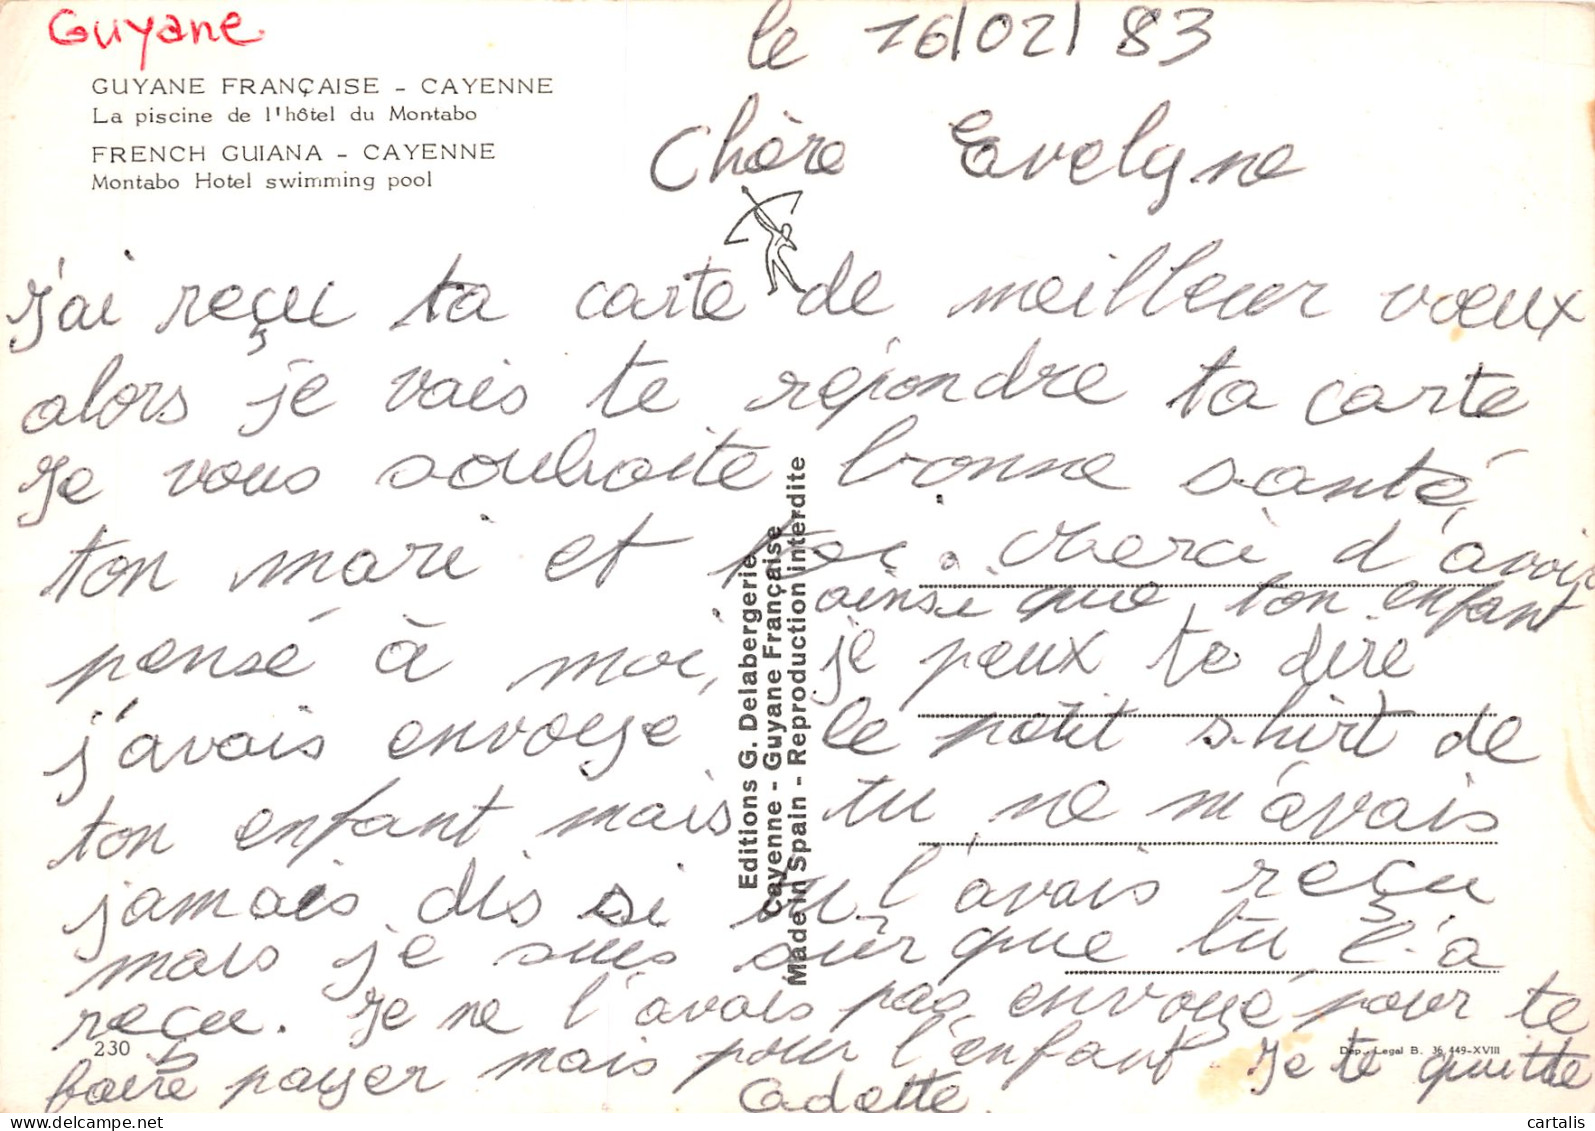 Guyane
le 16/02/83
GUYANE FRANÇAISE - CAYENNE
La piscine de l'hôtel du Montabo
FRENCH GUIANA - CAYENNE
Montabo Hotel swimming pool
Chère Evelyne
J'ai reçu ta carte de meilleur vœux
alors je vais te répondre ta carte
Je vous souhaite bonne santé,
ton mari et toi. Merci d'avoir
ainsi que ton enfant
pensé à moi, je peux te dire
j'avais envoye le petit shirt de
ton enfant mais tu ne m'avais
jamais dis si tu l'avais reçu
mais je suis sûr que tu l'a
reçu. Je ne l'avais pas envoyé pour te
faire payer mais pour l'enfant. Je te quitte
Odette.
Editions G. Delabergerie
Cayenne - Guyane Française
Made in Spain - Reproduction interdite
230
Dep. Legal B. 36.449-XVIII
cartalis
delcampe.net